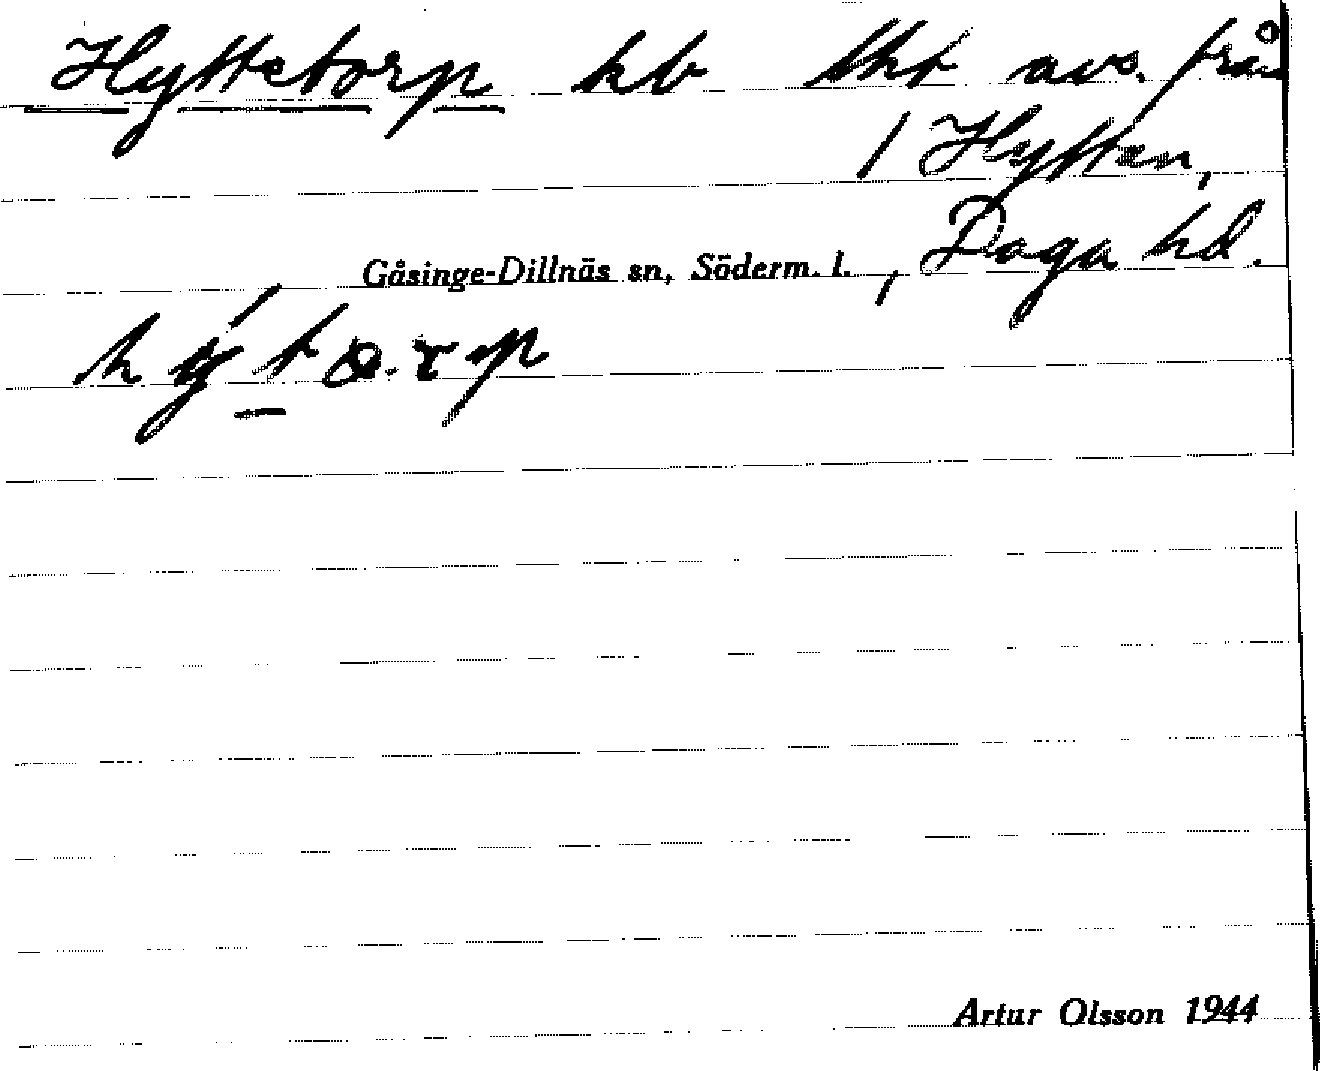 Hyttetorp hb lht avs. från
1 Hytten,
Gåsinge-Dillnäs sn, Söderm. l., Daga hd.
Artur Olsson 1944